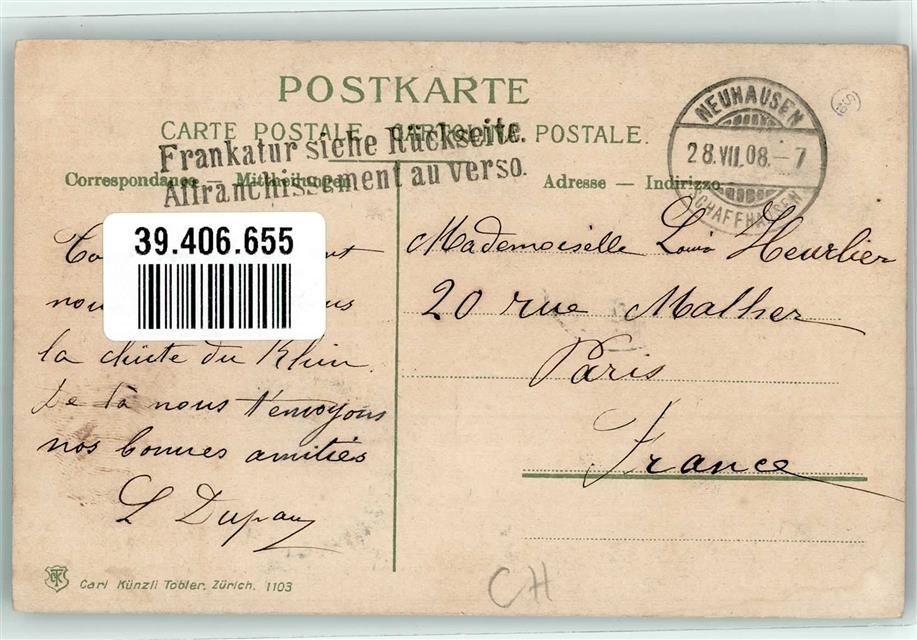 POSTKARTE
CARTE POSTALE. CARTOLINA POSTALE.
Frankatur siehe Rückseite.
Affranchissement au verso.
Correspondance — Mittheilungen
Adresse — Indirizzo
NEUHAUSEN
28.VII.08.–7
SCHAFFHAUSEN
39.406.655
la chûte du Rhin.
De là nous t'envoyons
nos bonnes amitiés
L Dupany
Mademoiselle Heurlier
20 rue Malher
Paris
France
CTK
Carl Künzli Tobler, Zürich. 1103
CH